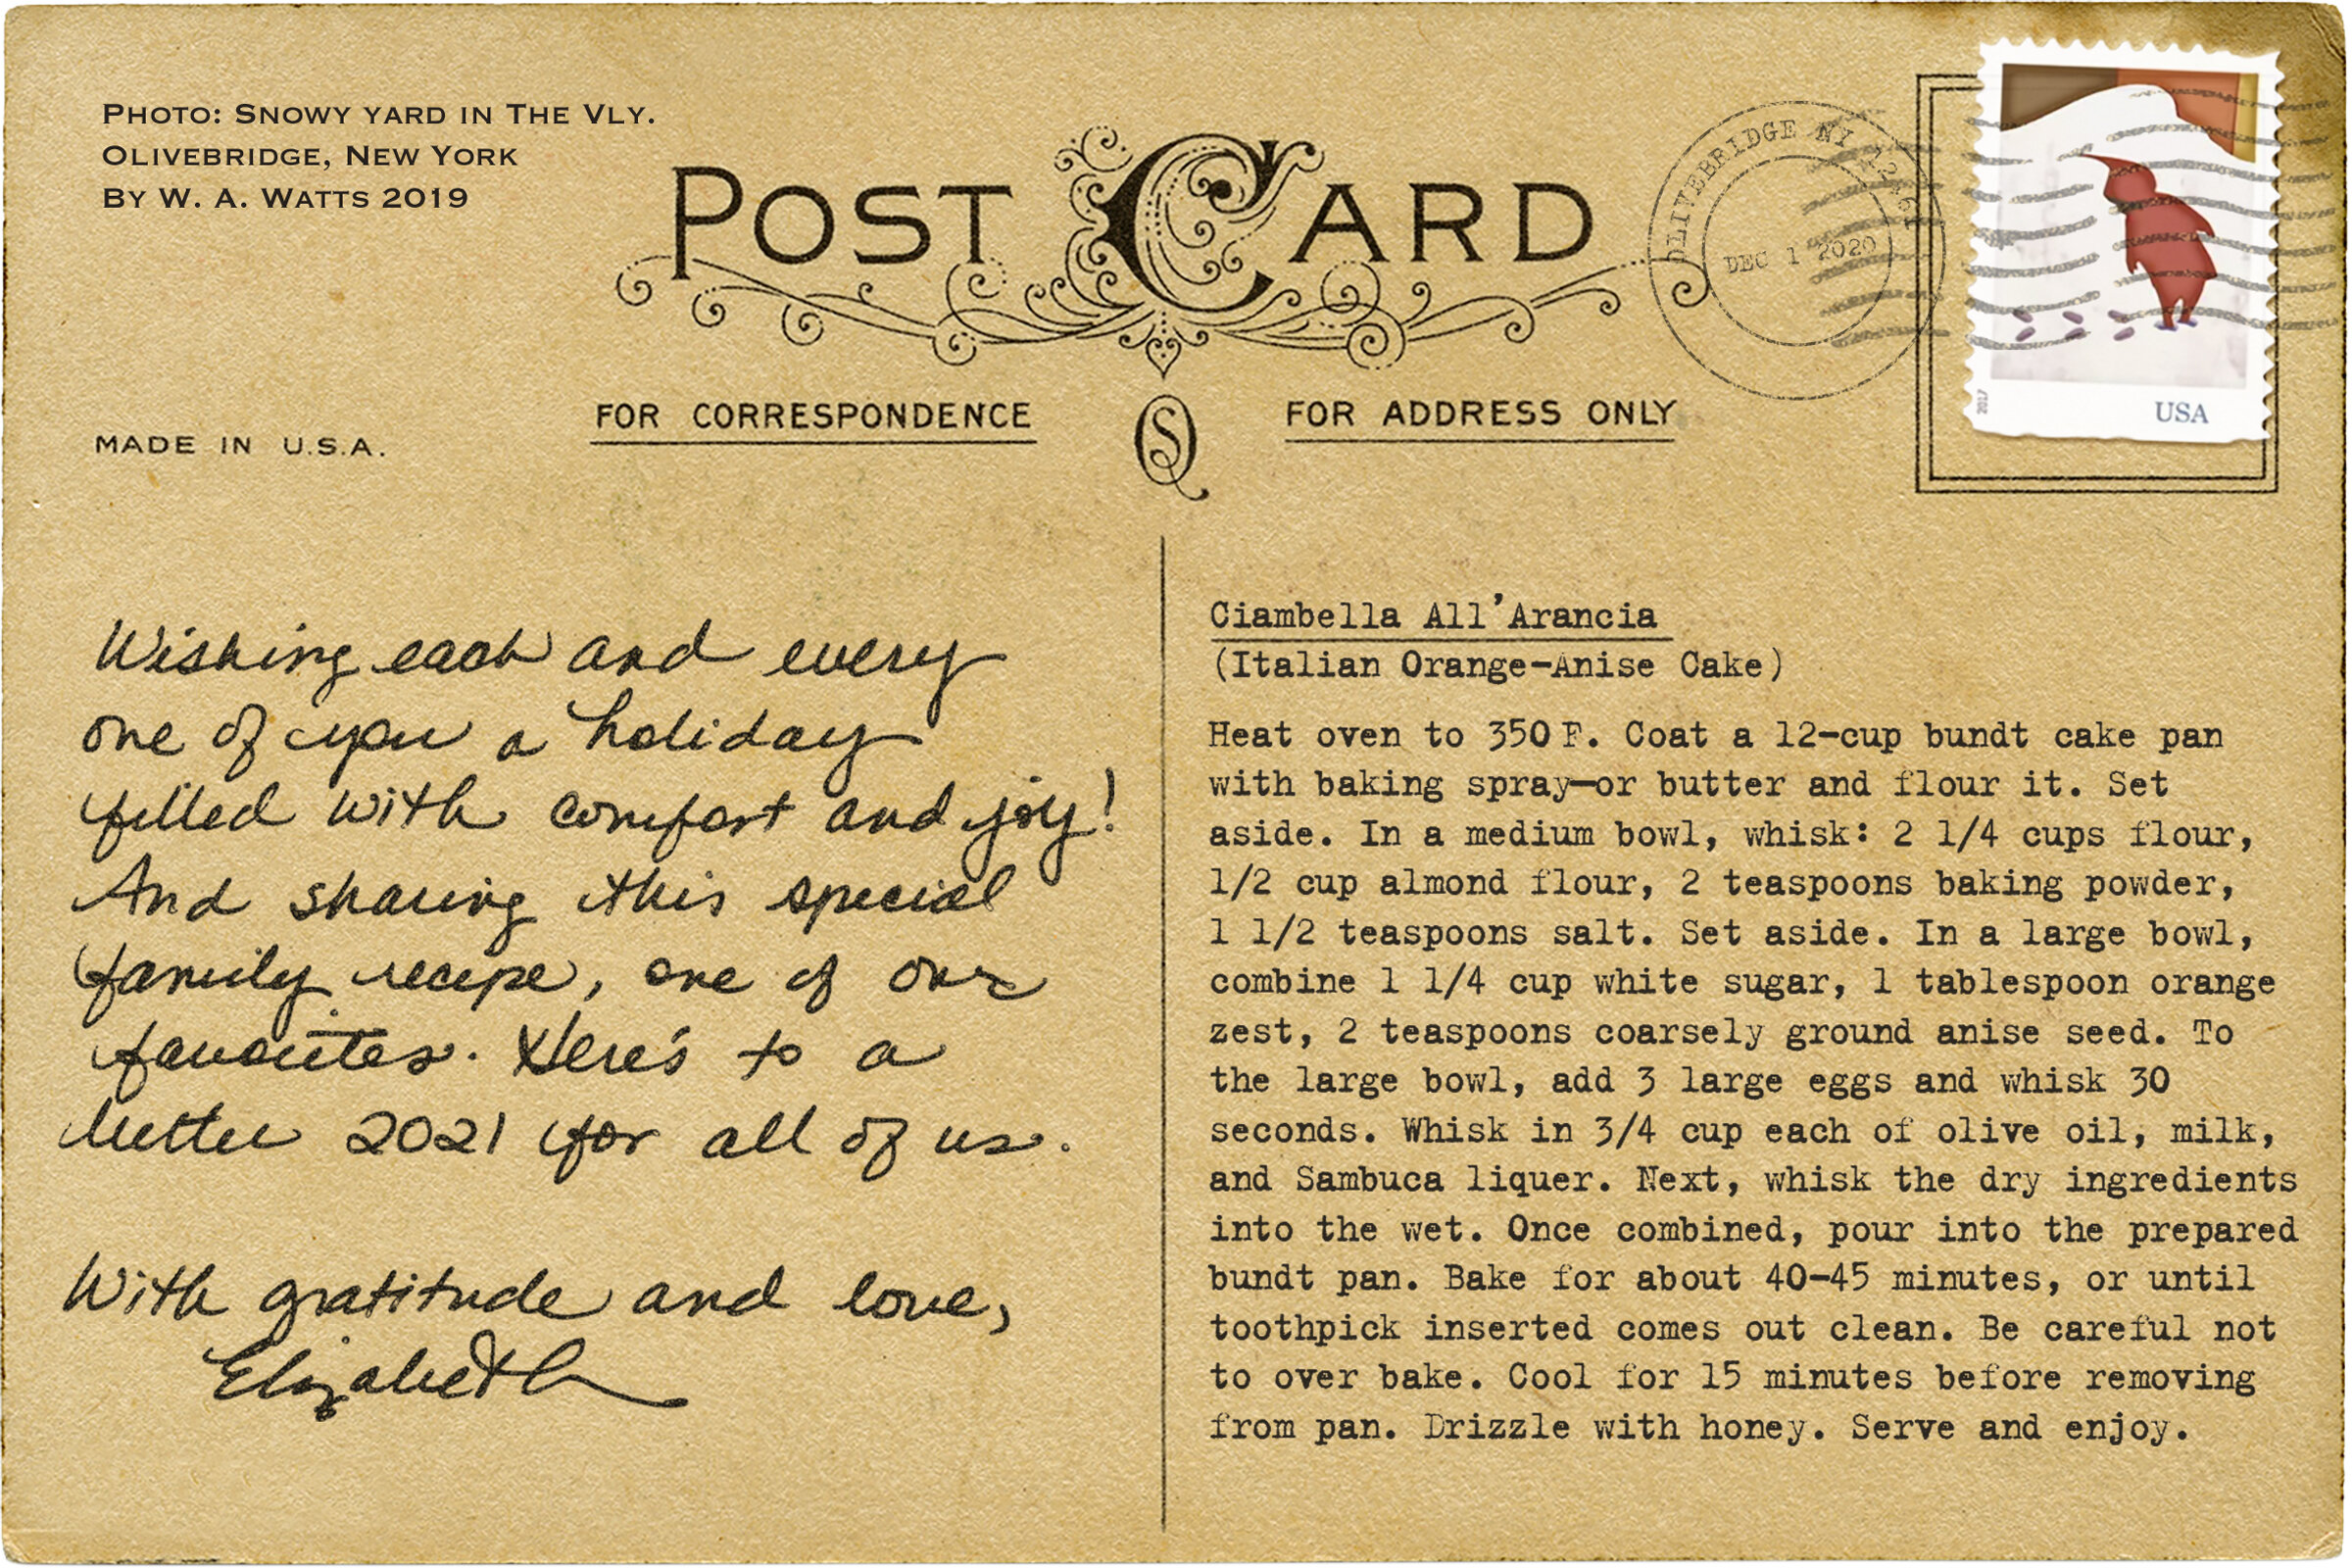 PHOTO: SNOWY YARD IN THE VLY.
OLIVEBRIDGE, NEW YORK
BY W. A. WATTS 2019
POST CARD
OLIVEBRIDGE NY 12461
DEC 1 2020
2017
USA
MADE IN U.S.A.
FOR CORRESPONDENCE
FOR ADDRESS ONLY
Wishing each and every
one of you a holiday
filled with comfort and joy!
And sharing this special
family recipe, one of our
favorites. Here's to a
better 2021 for all of us.
With gratitude and love,
Elizabeth
Ciambella All'Arancia
(Italian Orange-Anise Cake)
Heat oven to 350 F. Coat a 12-cup bundt cake pan
with baking spray—or butter and flour it. Set
aside. In a medium bowl, whisk: 2 1/4 cups flour,
1/2 cup almond flour, 2 teaspoons baking powder,
1 1/2 teaspoons salt. Set aside. In a large bowl,
combine 1 1/4 cup white sugar, 1 tablespoon orange
zest, 2 teaspoons coarsely ground anise seed. To
the large bowl, add 3 large eggs and whisk 30
seconds. Whisk in 3/4 cup each of olive oil, milk,
and Sambuca liquer. Next, whisk the dry ingredients
into the wet. Once combined, pour into the prepared
bundt pan. Bake for about 40-45 minutes, or until
toothpick inserted comes out clean. Be careful not
to over bake. Cool for 15 minutes before removing
from pan. Drizzle with honey. Serve and enjoy.